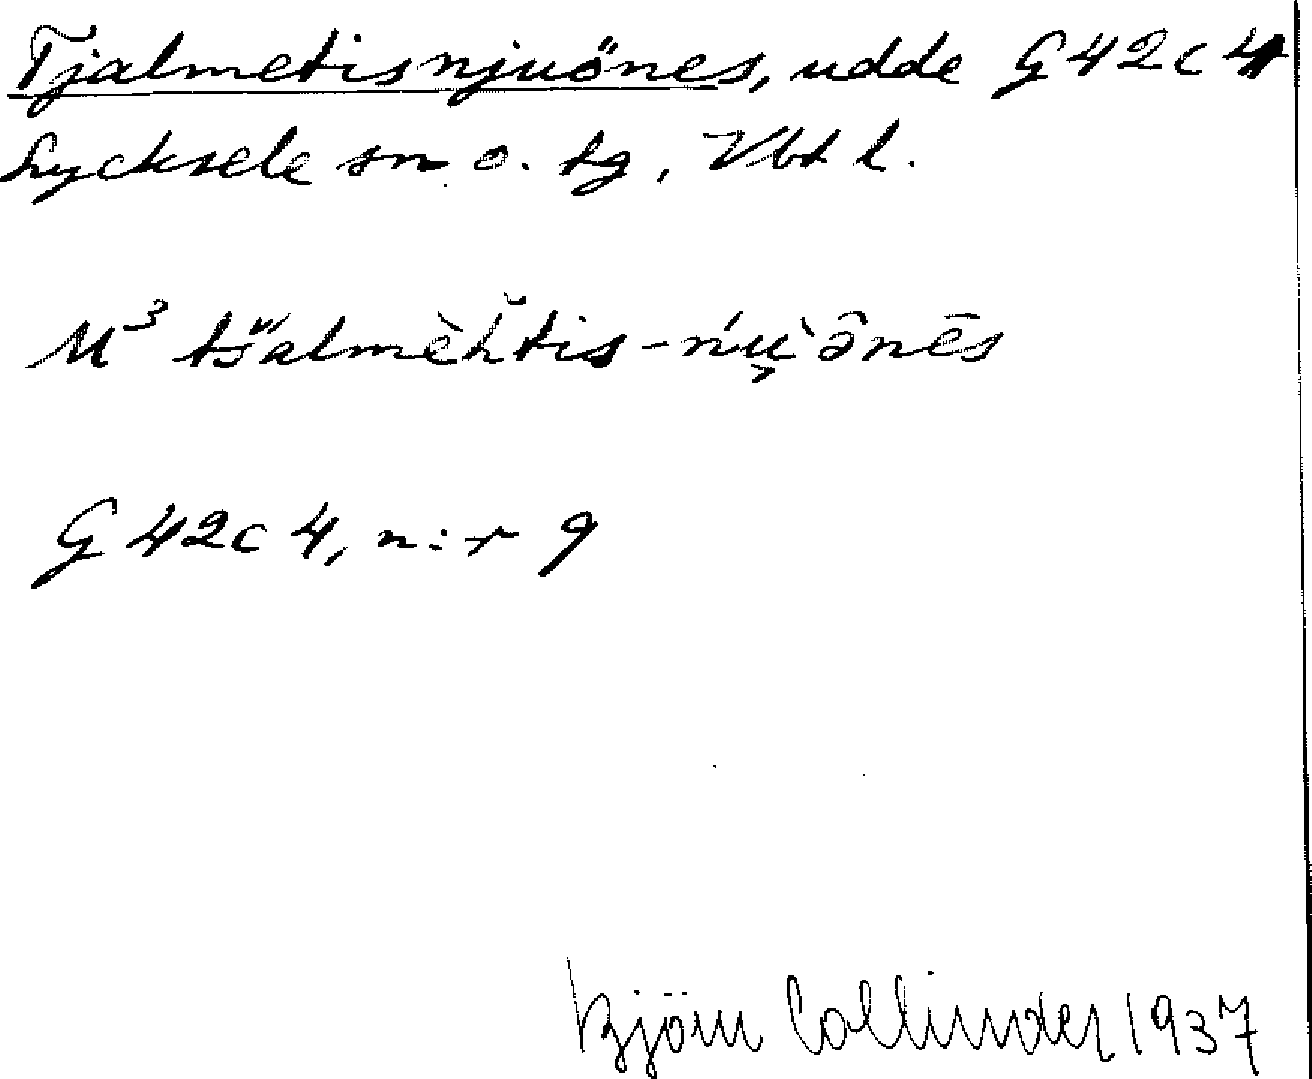 Tjalmetisnjuönes, udde G 42 c 4
Lycksele sn o. tg, Vbt l.
M³ tšalmèh̆tis-ńù̬ânēs
G 42 c 4, n:r 9
Björn Collinder 1937